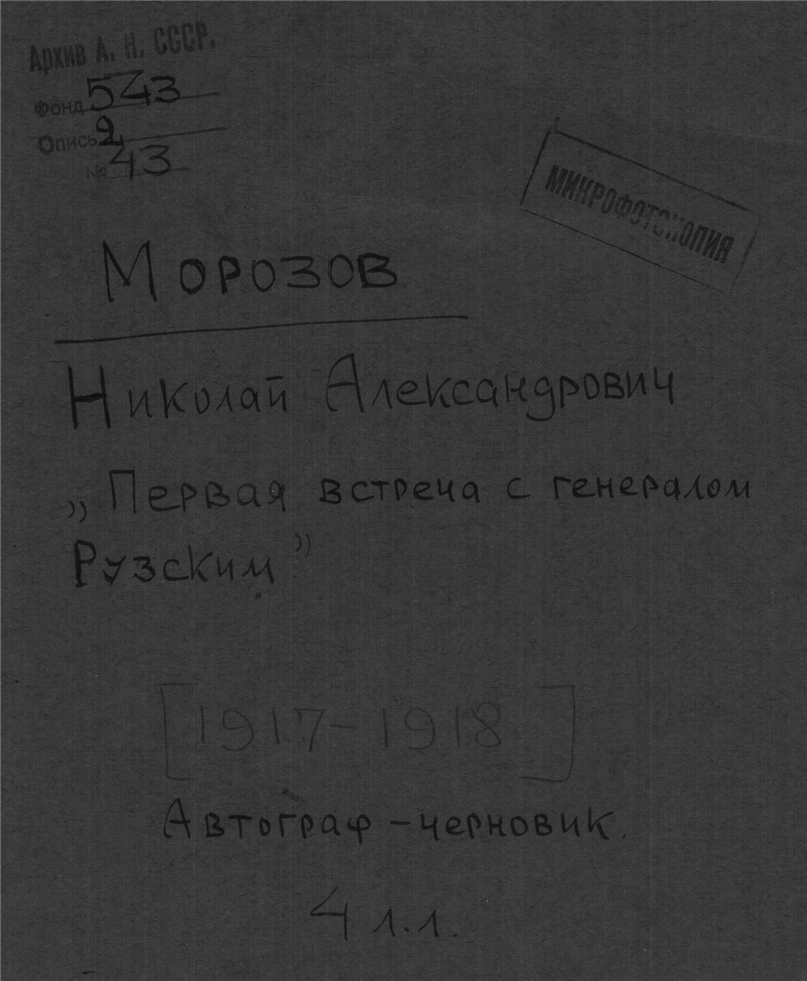 Архив А. Н. СССР.
Фонд 543
Опись 2
№ 43
МИКРОФОТОКОПИЯ
Морозов
Николай Александрович
„Первая встреча с генералом
Рузским."
[1917-1918]
Автограф-черновик.
4 л.л.